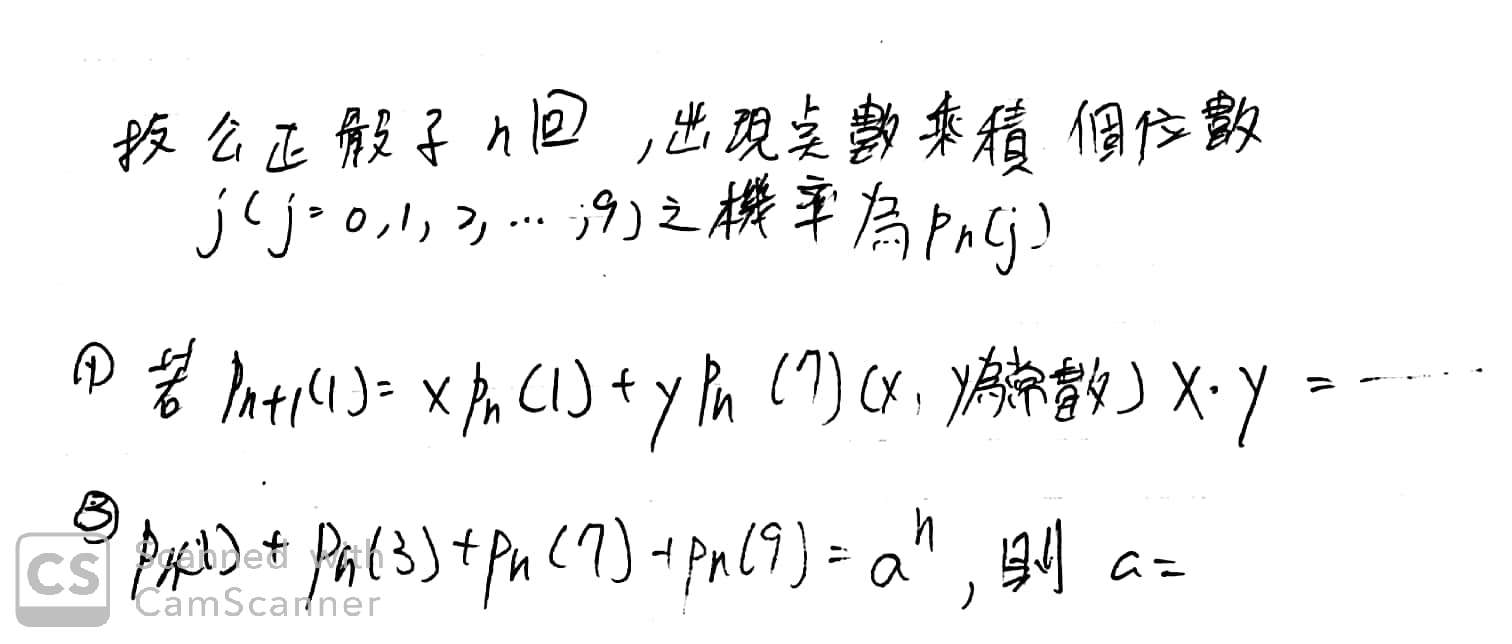 投公正骰子n回,出現点數乘積個位數
j(j=0,1,2,…,9)之機率為pn(j)
① 若 Pn+1(1)= x pn(1)+ y Pn (7)(x, y為常數) x·y = ------
③ pn(1)+ Pn(3)+pn(7)+pn(9)= a^n, 則 a=
CS Scanned with
CamScanner